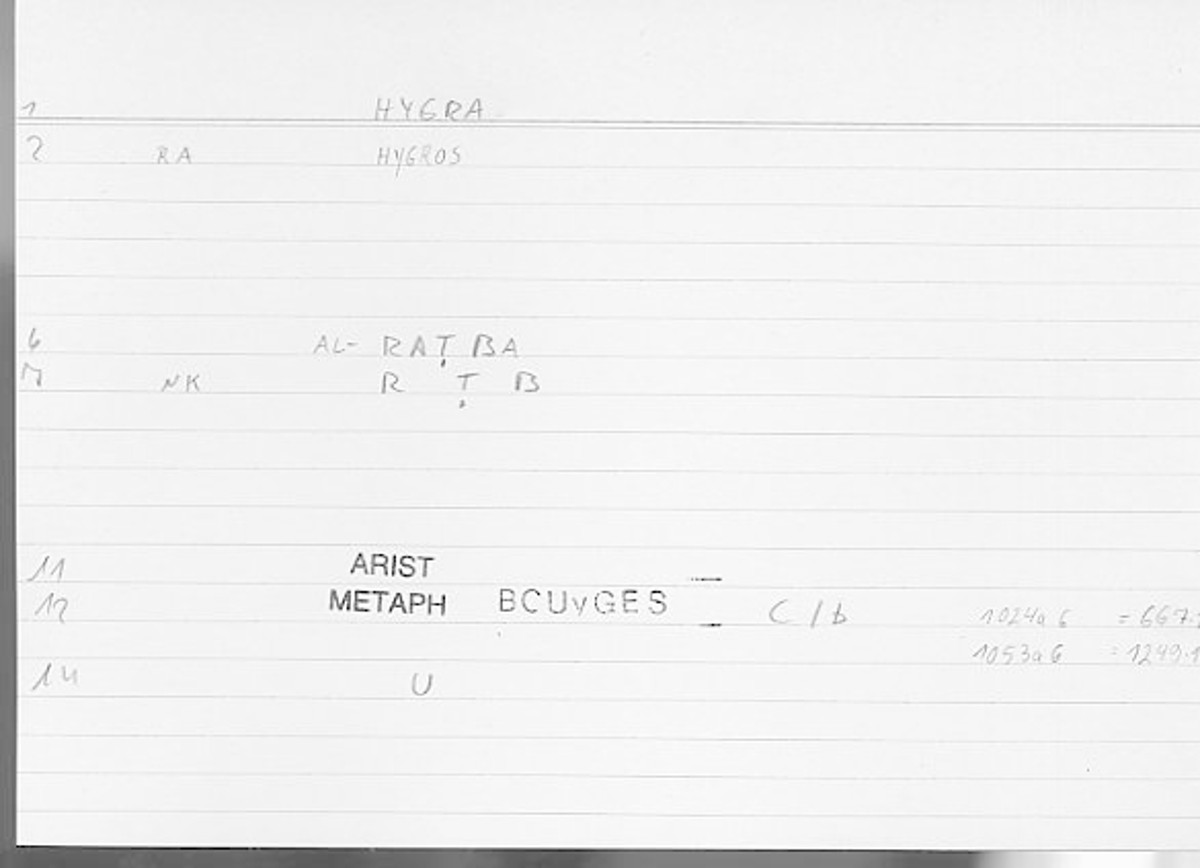 1 HYGRA
2 RA HYGROS
6 AL- RAṬBA
7 NK R Ṭ B
11 ARIST
12 METAPH BCUvGES — C/b 1024a6 = 667.
1053a6 = 1249.1
14 U